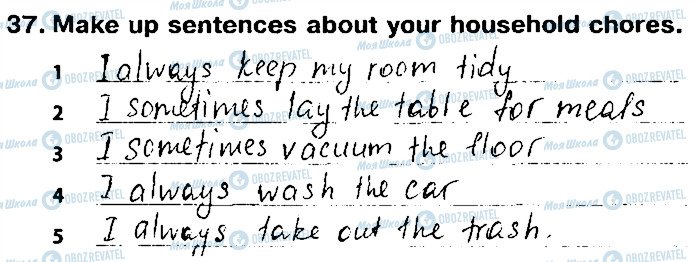 37. Make up sentences about your household chores.
1 I always keep my room tidy
2 I sometimes lay the table for meals
3 I sometimes vacuum the floor
4 I always wash the car
5 I always take out the trash.